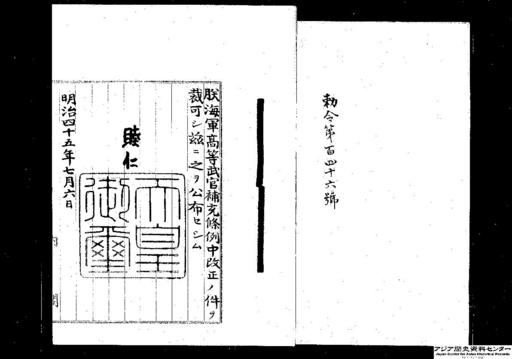 勅令第百四十六號
朕海軍高等武官補充條例中改正ノ件ヲ
裁可シ茲ニ之ヲ公布セシム
睦仁
天皇御璽
明治四十五年七月六日
内閣
アジア歴史資料センター
Japan Center for Asian Historical Records